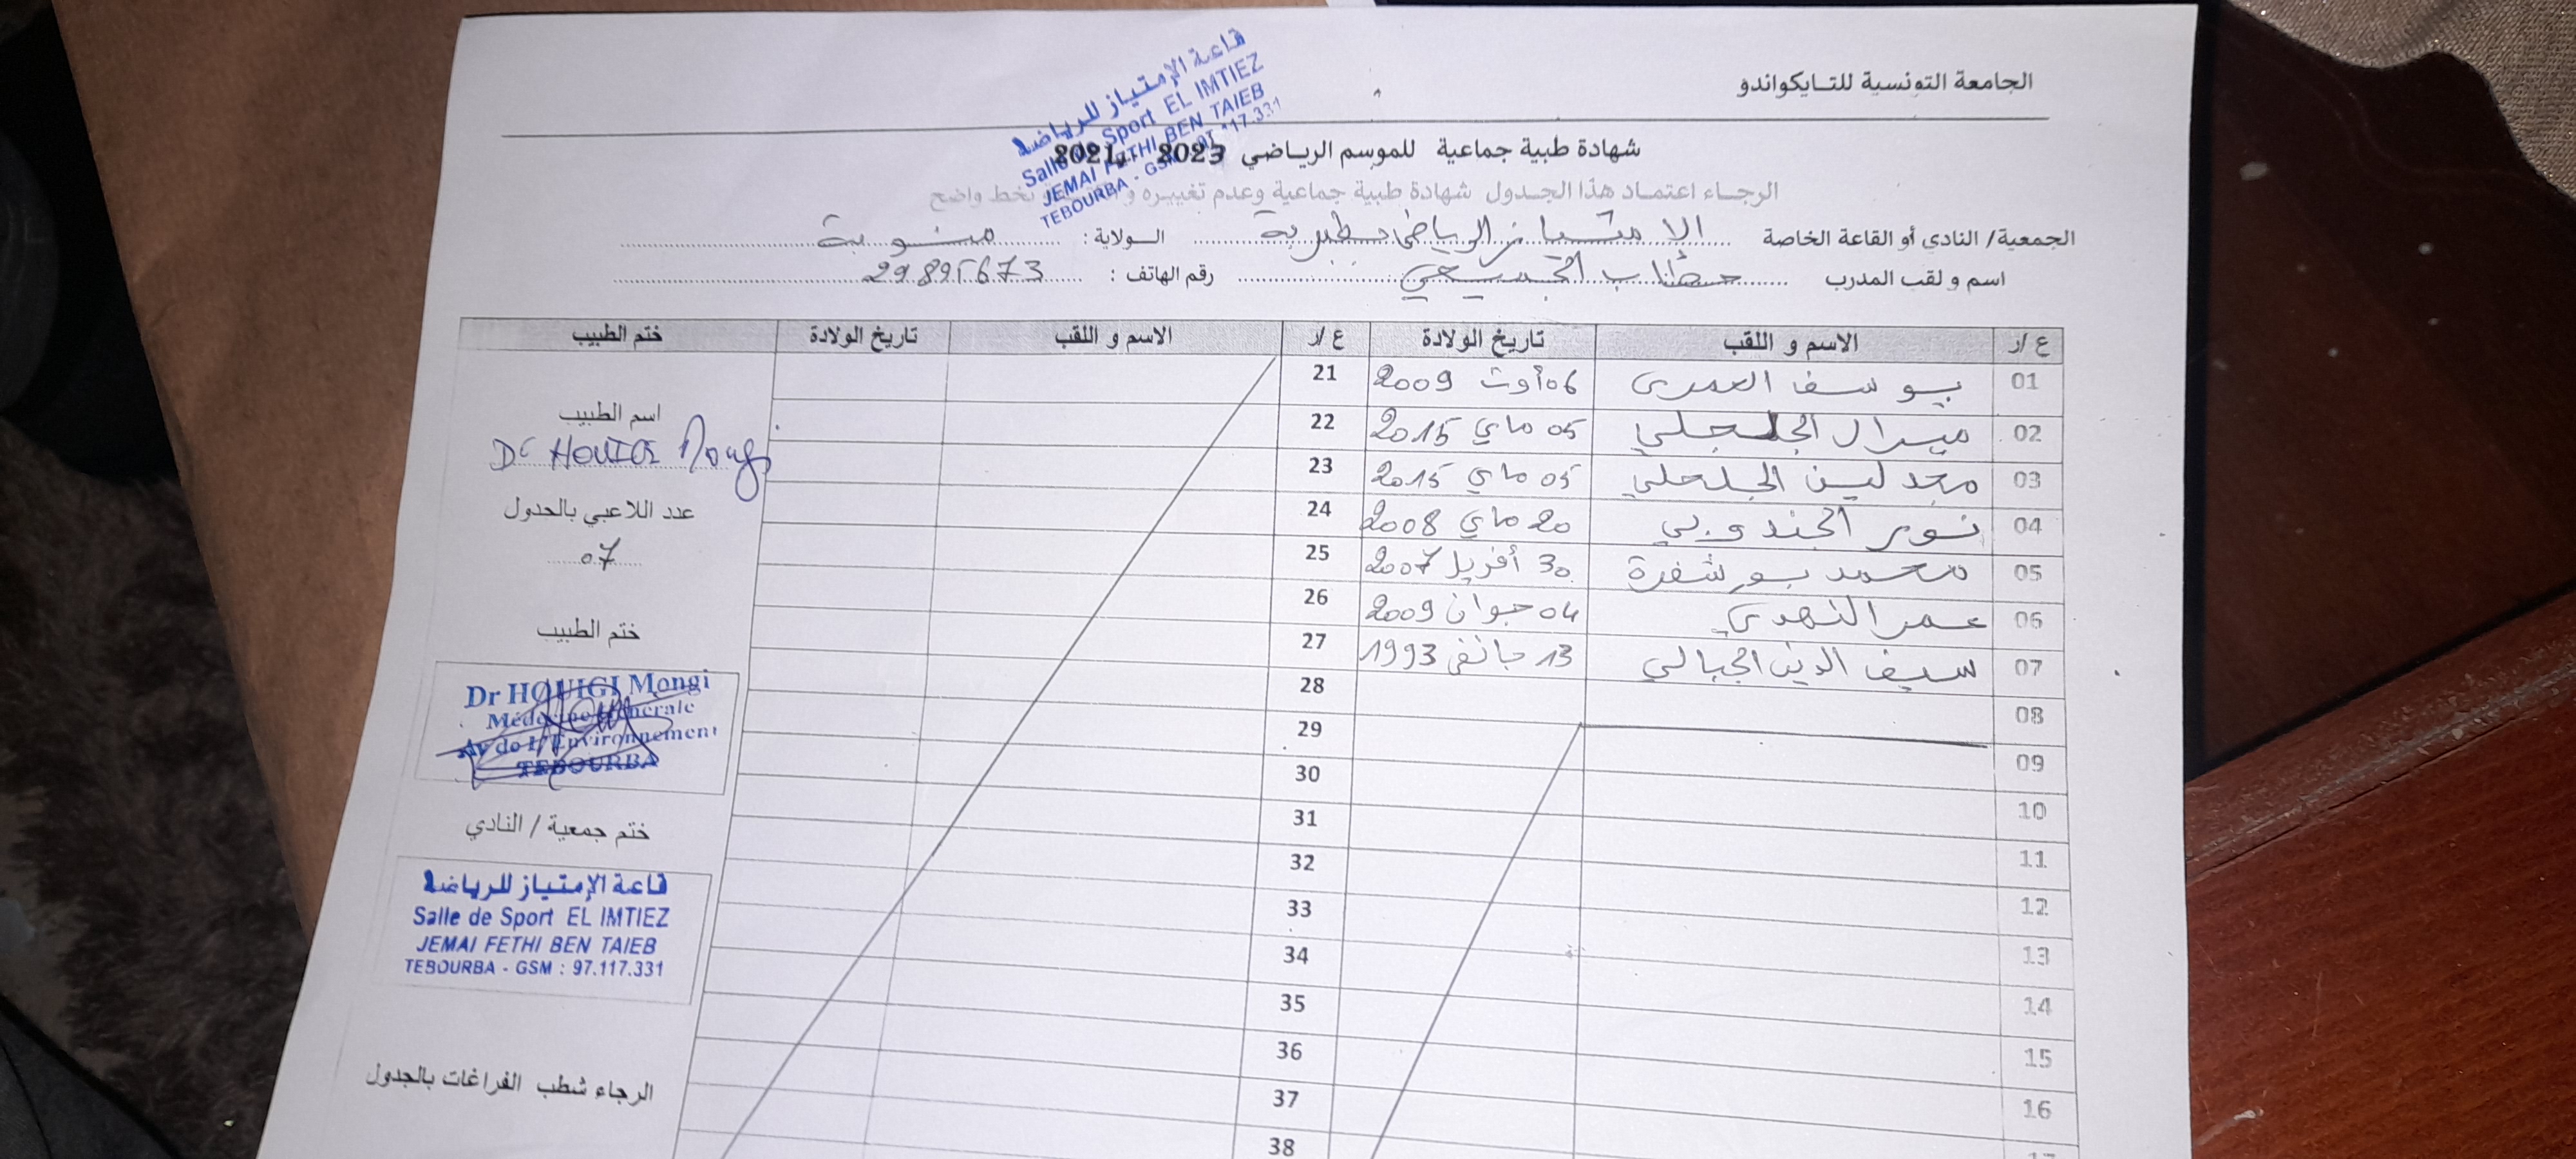 الجامعة التونسية للتايكواندو
قاعة الإمتياز للرياضة
Salle de Sport EL IMTIEZ
JEMAI FETHI BEN TAIEB
TEBOURBA - GSM : 97.117.331
شهادة طبية جماعية للموسم الرياضي 2023
الرجاء اعتماد هذا الجدول شهادة طبية جماعية وعدم تغييره بخط واضح
الجمعية/ النادي أو القاعة الخاصة الإمتياز الرياضي بطبربة الولاية : منوبة
اسم و لقب المدرب خطاب رقم الهاتف : 29895673
ع /ر الاسم و اللقب تاريخ الولادة ع /ر الاسم و اللقب تاريخ الولادة ختم الطبيب
01 يوسف العمري 06 أوت 2009 21
02 ميرال الجلجلي 05 ماي 2015 22
03 مجدلين الجلجلي 05 ماي 2015 23
04 نور الجندوبي 20 ماي 2008 24
05 محمد بوشفرة 30 أفريل 2007 25
06 عمر النهدي 04 جوان 2009 26
07 سيف الدين الجبالي 13 جانفي 1993 27
08 28
09 29
10 30
11 31
12 32
13 33
14 34
15 35
16 36
37
38
اسم الطبيب
Dr HOUIGI Mongi
عدد اللاعبي بالجدول
07
ختم الطبيب
Dr HOUIGI Mongi
Médecine Générale
Av de L'Environnement
TEBOURBA
ختم جمعية / النادي
قاعة الإمتياز للرياضة
Salle de Sport EL IMTIEZ
JEMAI FETHI BEN TAIEB
TEBOURBA - GSM : 97.117.331
الرجاء شطب الفراغات بالجدول